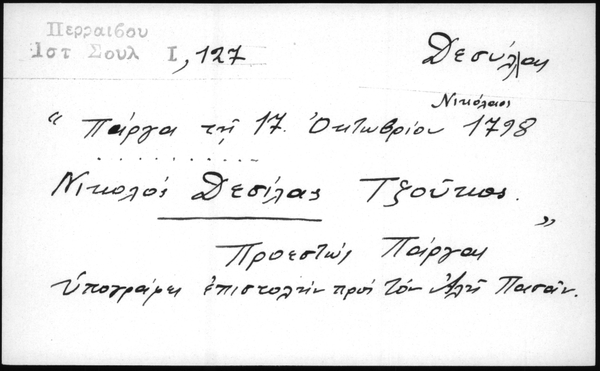 Περραιβου
Ιστ Σουλ Ι, 127
Δεσύλλας
Νικόλαος
“ Πάργα τῇ 17. Ὀκτωβρίου 1798
. . . . . . . . . .
Νικολός Δεσίλας Τζούκος. ”
Προεστώς Πάργας
ὑπογράφει ἐπιστολήν πρός τόν Ἀλῆ Πασᾶν.